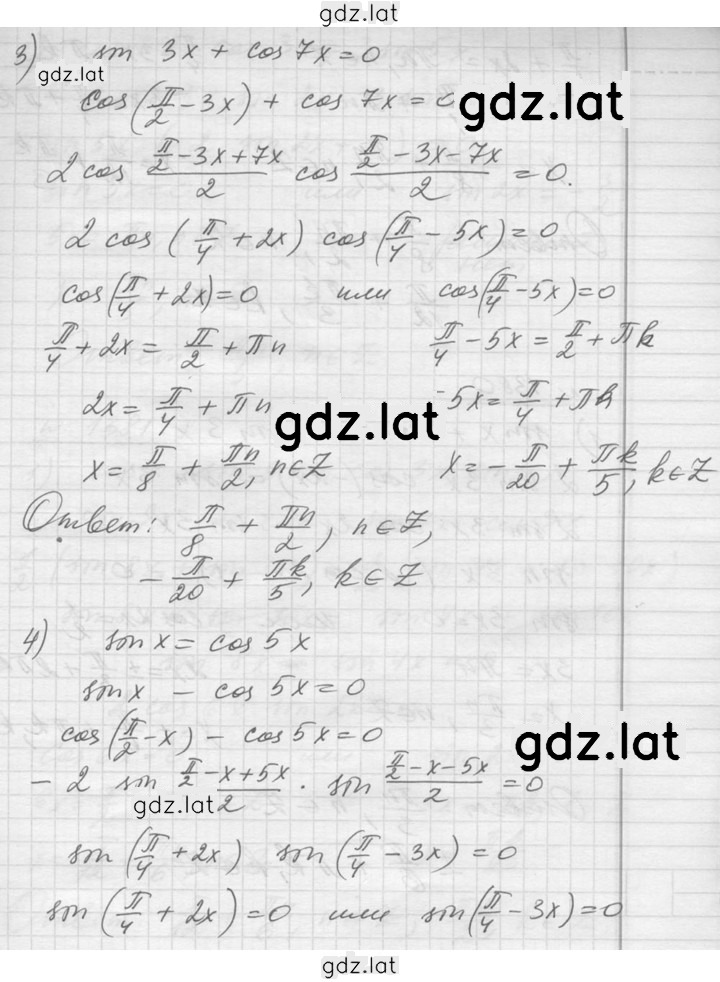 gdz.lat
3) sin 3x + cos 7x = 0
gdz.lat
cos(π/2 - 3x) + cos 7x = 0
gdz.lat
2 cos (π/2 - 3x + 7x)/2 cos (π/2 - 3x - 7x)/2 = 0.
2 cos (π/4 + 2x) cos(π/4 - 5x) = 0
cos(π/4 + 2x) = 0 или cos(π/4 - 5x) = 0
π/4 + 2x = π/2 + πn π/4 - 5x = π/2 + πk
2x = π/4 + πn -5x = π/4 + πk
gdz.lat
x = π/8 + πn/2, n∈Z x = -π/20 + πk/5, k∈Z
Ответ: π/8 + πn/2, n∈Z,
-π/20 + πk/5, k∈Z
4) sin x = cos 5x
sin x - cos 5x = 0
cos(π/2 - x) - cos 5x = 0
gdz.lat
-2 sin (π/2 - x + 5x)/2 · sin (π/2 - x - 5x)/2 = 0
gdz.lat
sin(π/4 + 2x) sin(π/4 - 3x) = 0
sin(π/4 + 2x) = 0 или sin(π/4 - 3x) = 0
gdz.lat